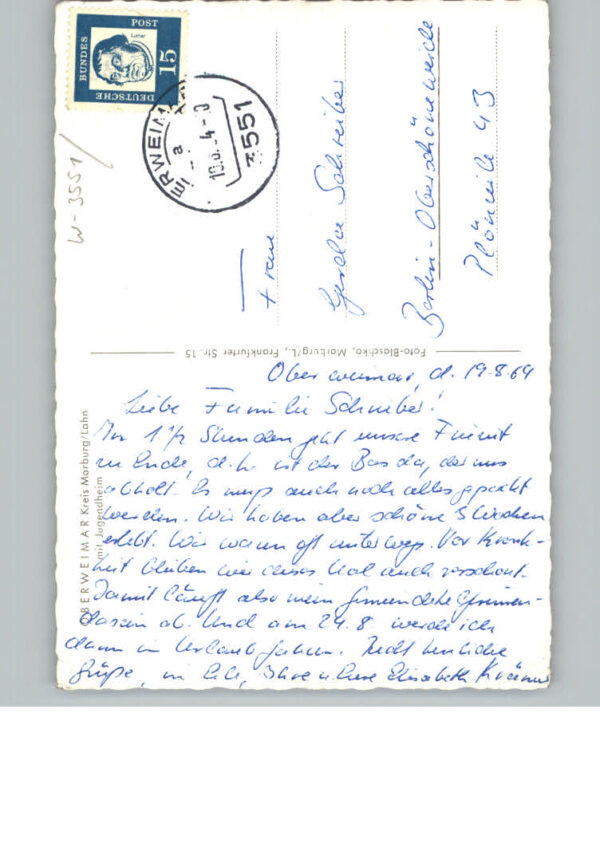 DEUTSCHE
BUNDES
POST
15
Luther
3551
W-3551
Frau
Gerda Schreiber
Berlin-Oberschöneweide
Plönzeile 43
Foto-Blaschko, Marburg/L., Frankfurter Str. 15
OBERWEIMAR Kreis Marburg/Lahn
mit Jugendheim
Oberweimar, d. 19.8.64
Liebe Familie Schreiber!
In 1 1/2 Stunden geht unsere Freizeit
zu Ende, d.h. ist der Bus da, der uns
abholt. Es muß auch noch alles gepackt
werden. Wir haben aber schöne 3 Wochen
erlebt. Wir waren oft unterwegs. Vor Krank-
heit blieben wir dieses Mal auch verschont.
Damit läuft also mein
dasein ab. Und am 24.8 werde ich
dann in Urlaub fahren. Recht herzliche
Grüße, in Eile, Ihre Elisabeth Krämer